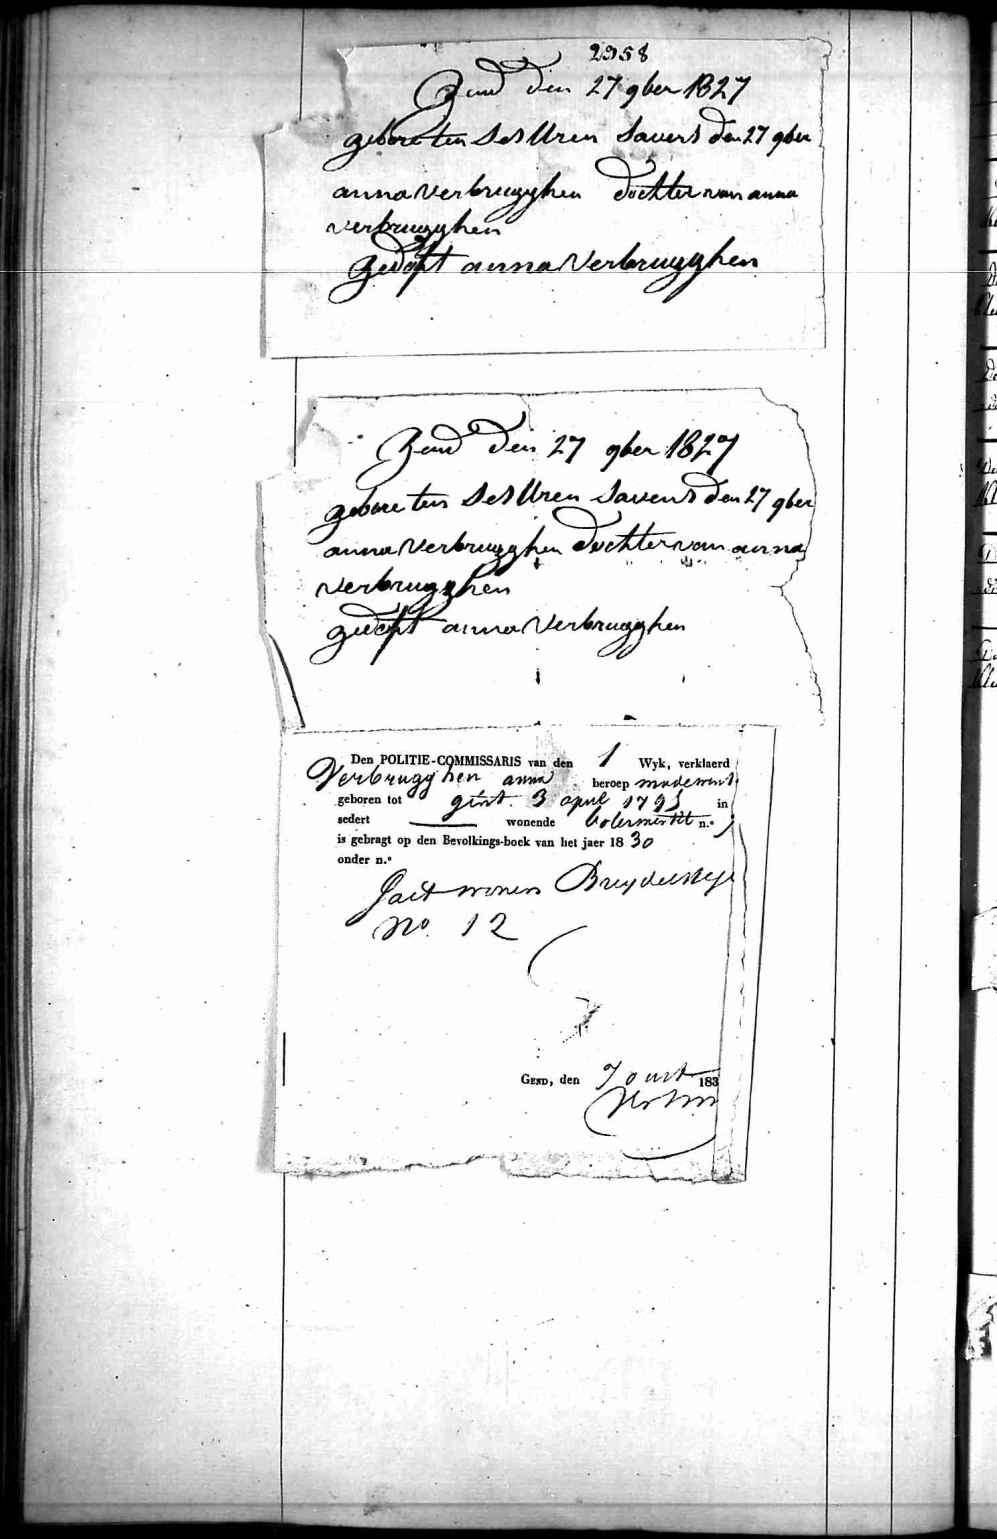 2958
Gend den 27 9ber 1827
gebore ten ses Uren savens den 27 9ber
anna verbrugghen dochter van anna
verbrugghen
gedopt anna verbrugghen
Gend den 27 9ber 1827
gebore ten ses Uren savens den 27 9ber
anna verbrugghen dochter van anna
verbrugghen
gedopt anna verbrugghen
Den POLITIE-COMMISSARIS van den 1 Wyk, verklaerd
Verbrugghen anna beroep
geboren tot gent 3 april 1793 in
sedert wonende n.°
is gebragt op den Bevolkings-boek van het jaer 1830
onder n.°
gaet wonen
No. 12
GEND, den 7 183